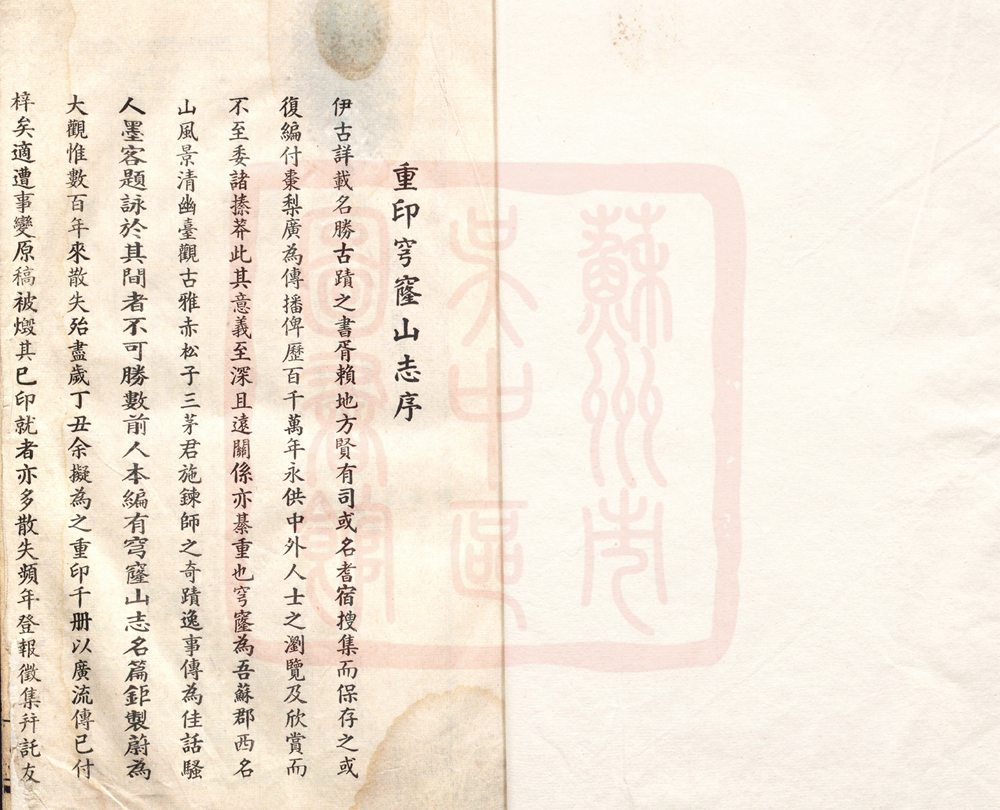 蘇州市
吳中區
圖書館
重印穹窿山志序
伊古詳載名勝古蹟之書胥賴地方賢有司或名耆宿搜集而保存之或
復編付棗梨廣為傳播俾歷百千萬年永供中外人士之瀏覽及欣賞而
不至委諸搸莽此其意義至深且遠關係亦綦重也穹窿為吾蘇郡西名
山風景清幽臺觀古雅赤松子三茅君施鍊師之奇蹟逸事傳為佳話騷
人墨客題詠於其間者不可勝數前人本編有穹窿山志名篇鉅製蔚為
大觀惟數百年來散失殆盡歲丁丑余擬為之重印千册以廣流傳已付
梓矣適遭事變原稿被燬其已印就者亦多散失頻年登報徵集幷託友